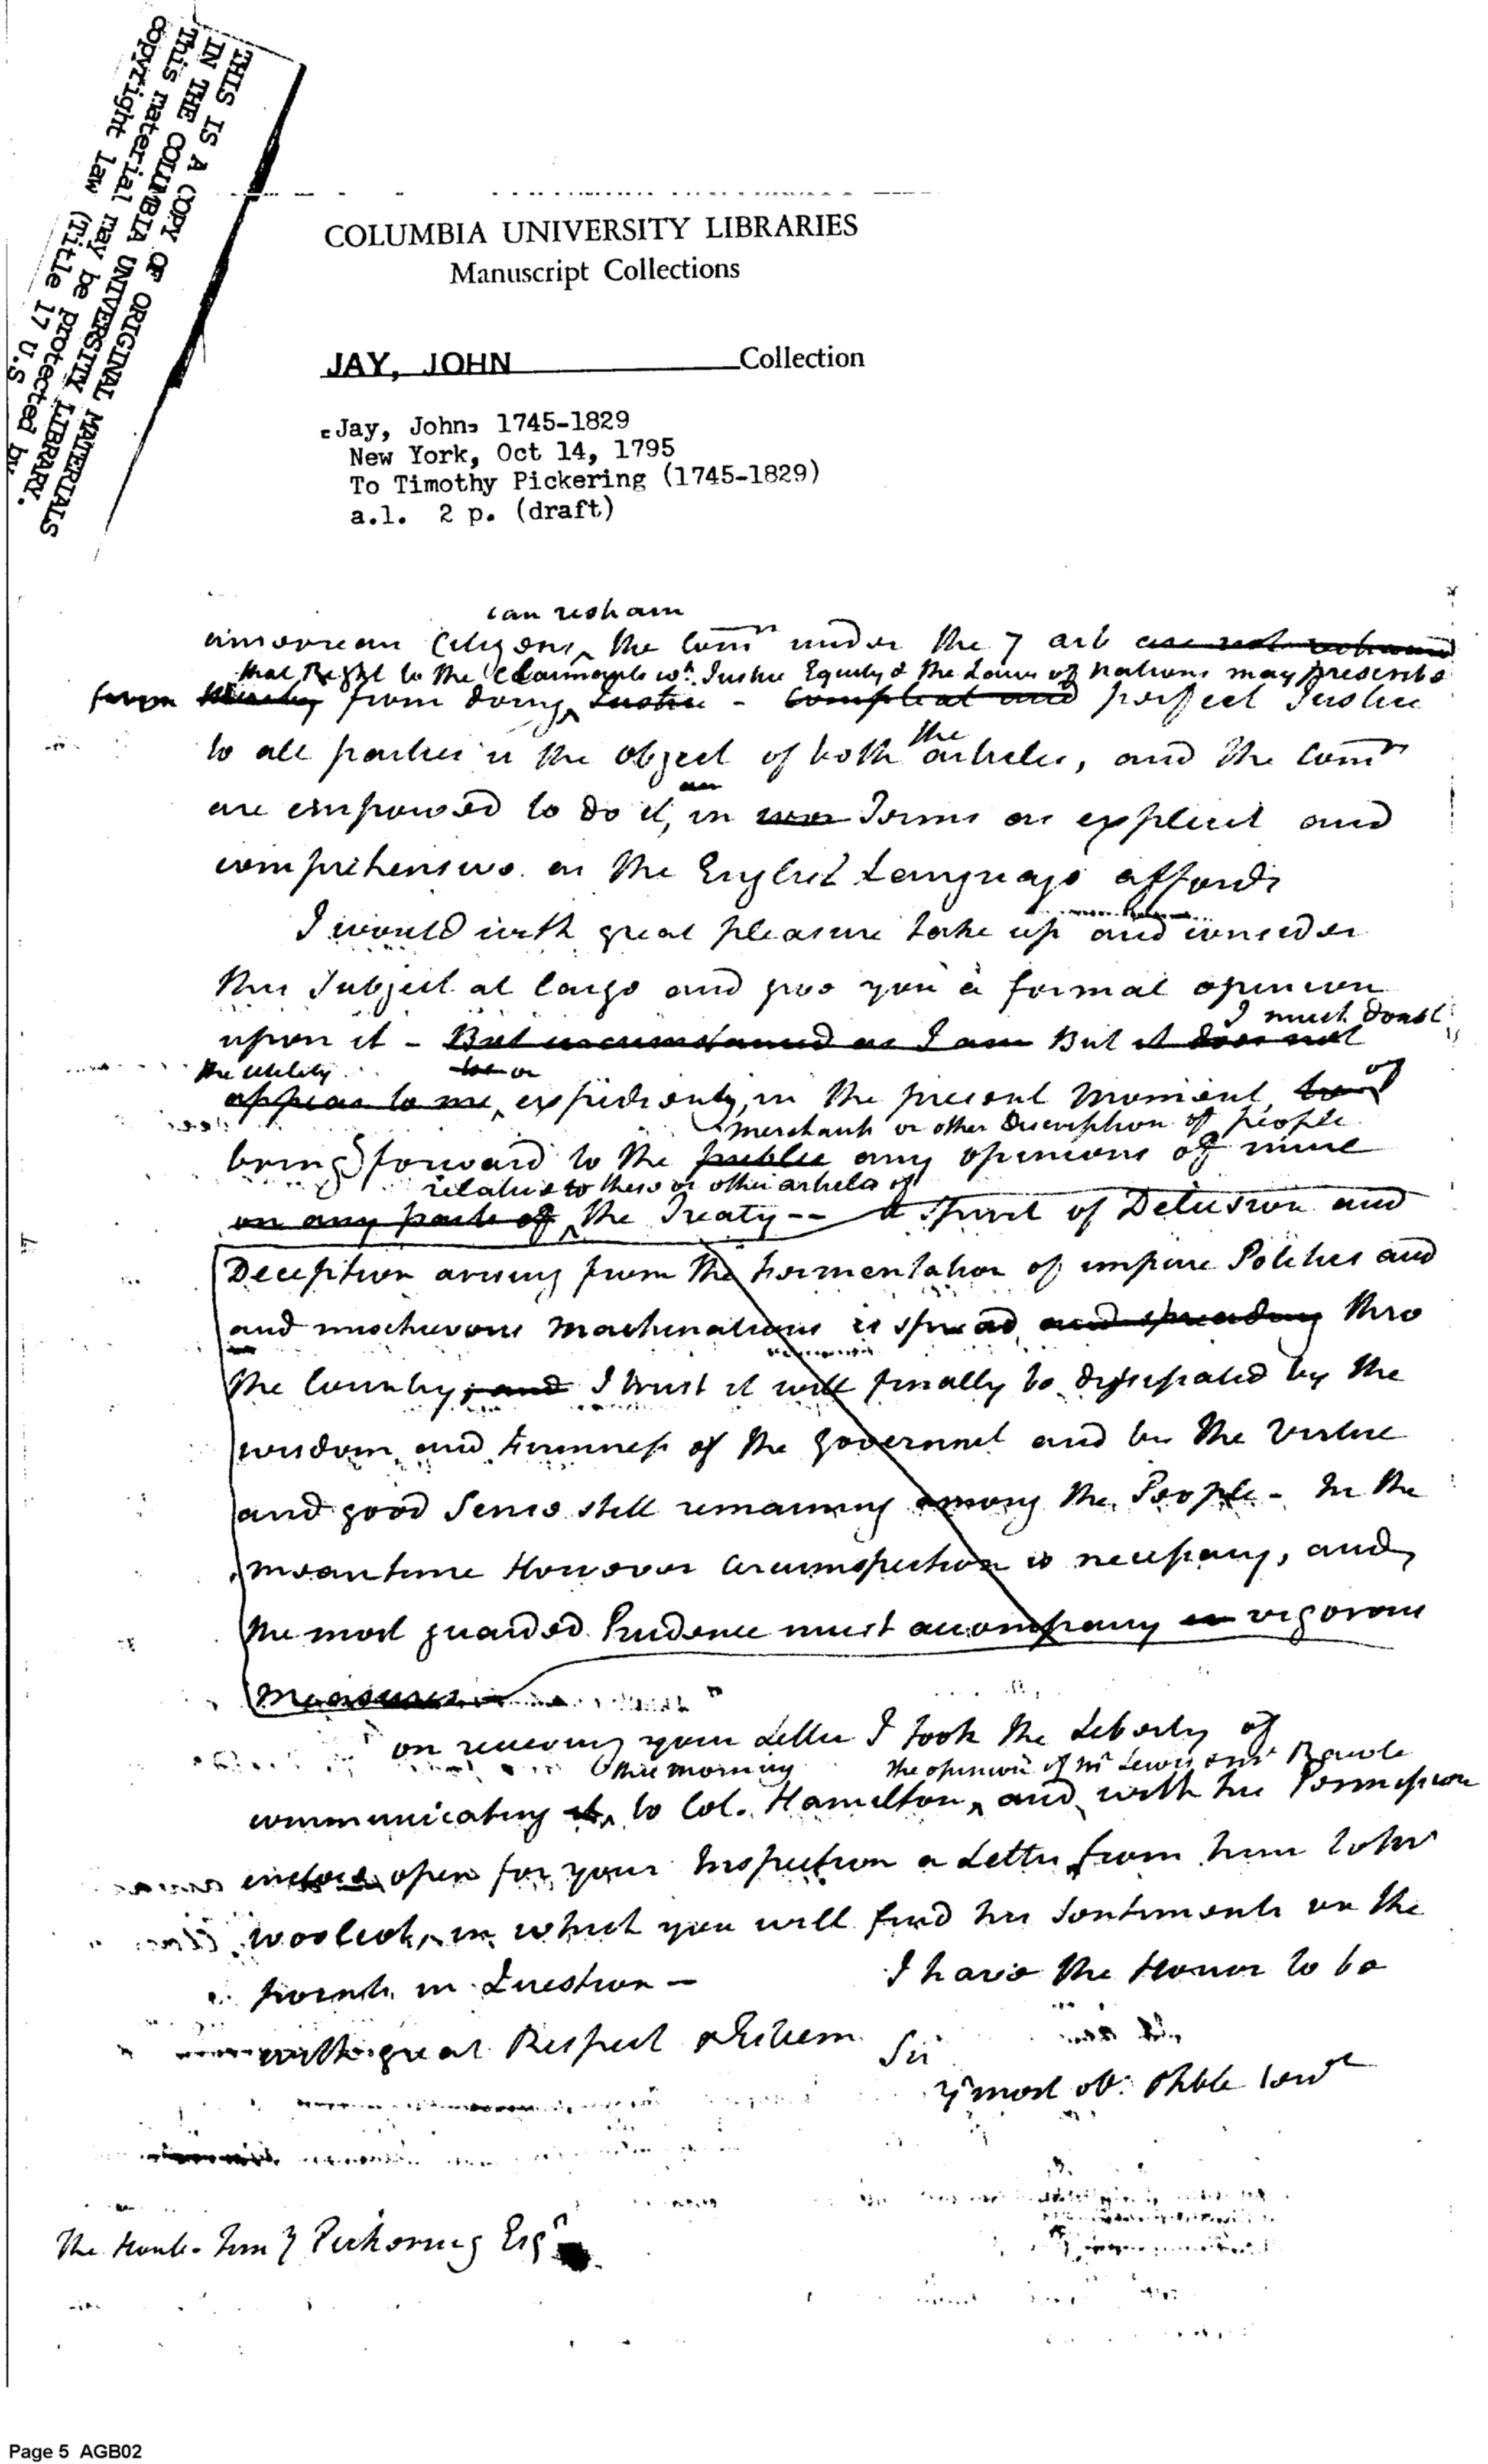 THIS IS A COPY OF ORIGINAL MATERIALS
IN THE COLUMBIA UNIVERSITY LIBRARY.
This material may be protected by
copyright law (Title 17 U.S
COLUMBIA UNIVERSITY LIBRARIES
Manuscript Collections
JAY, JOHN Collection
Jay, John, 1745-1829
New York, Oct 14, 1795
To Timothy Pickering (1745-1829)
a.l. 2 p. (draft)
can restrain
american Citizens, the Comrs under the 7 art are not restrained
that Right to the Claimants wh. Justice Equity & the Laws of nations may prescribe
from doing Justice - compleat and perfect Justice
to all parties is the object of both the articles, and the Comrs
are empowered to do it, in Terms as explicit and
comprehensive as the English Language affords
I would with great pleasure take up and consider
this Subject at large and give you a formal opinion
I much doubt
upon it - But circumstanced as I am But it does not
the utility or
appear to me, expediency, in the present moment, of
merchants or other Description of people
bring forward to the public any opinions of mine
relative to these or other articles of
on any parts of the Treaty -- a Spirit of Delusion and
Deception arising from the fermentation of impure Politics and
and mischievous machinations is spread and spreading thro
the Country, and I trust it will finally be dissipated by the
wisdom and firmness of the governmt and by the Virtue
and good Sense still remaining among the People - In the
meantime However Circumspection is necessary, and
the most guarded Prudence must accompany vigorous
measures
on receiving your Letter I took the Liberty of
this morning the opinion of Mr Lewis & Mr Rawle
communicating it, to Col. Hamilton, and with his Permission
enclose open for your Inspection a Letter from him to Mr
Woolcot, in which you will find his Sentiments on the
points in Question -
I have the Honor to be
with great Respect & Esteem
Sir
yr most ob. & hble servt
The Honb. Timy Pickering Esqr
Page 5 AGB02